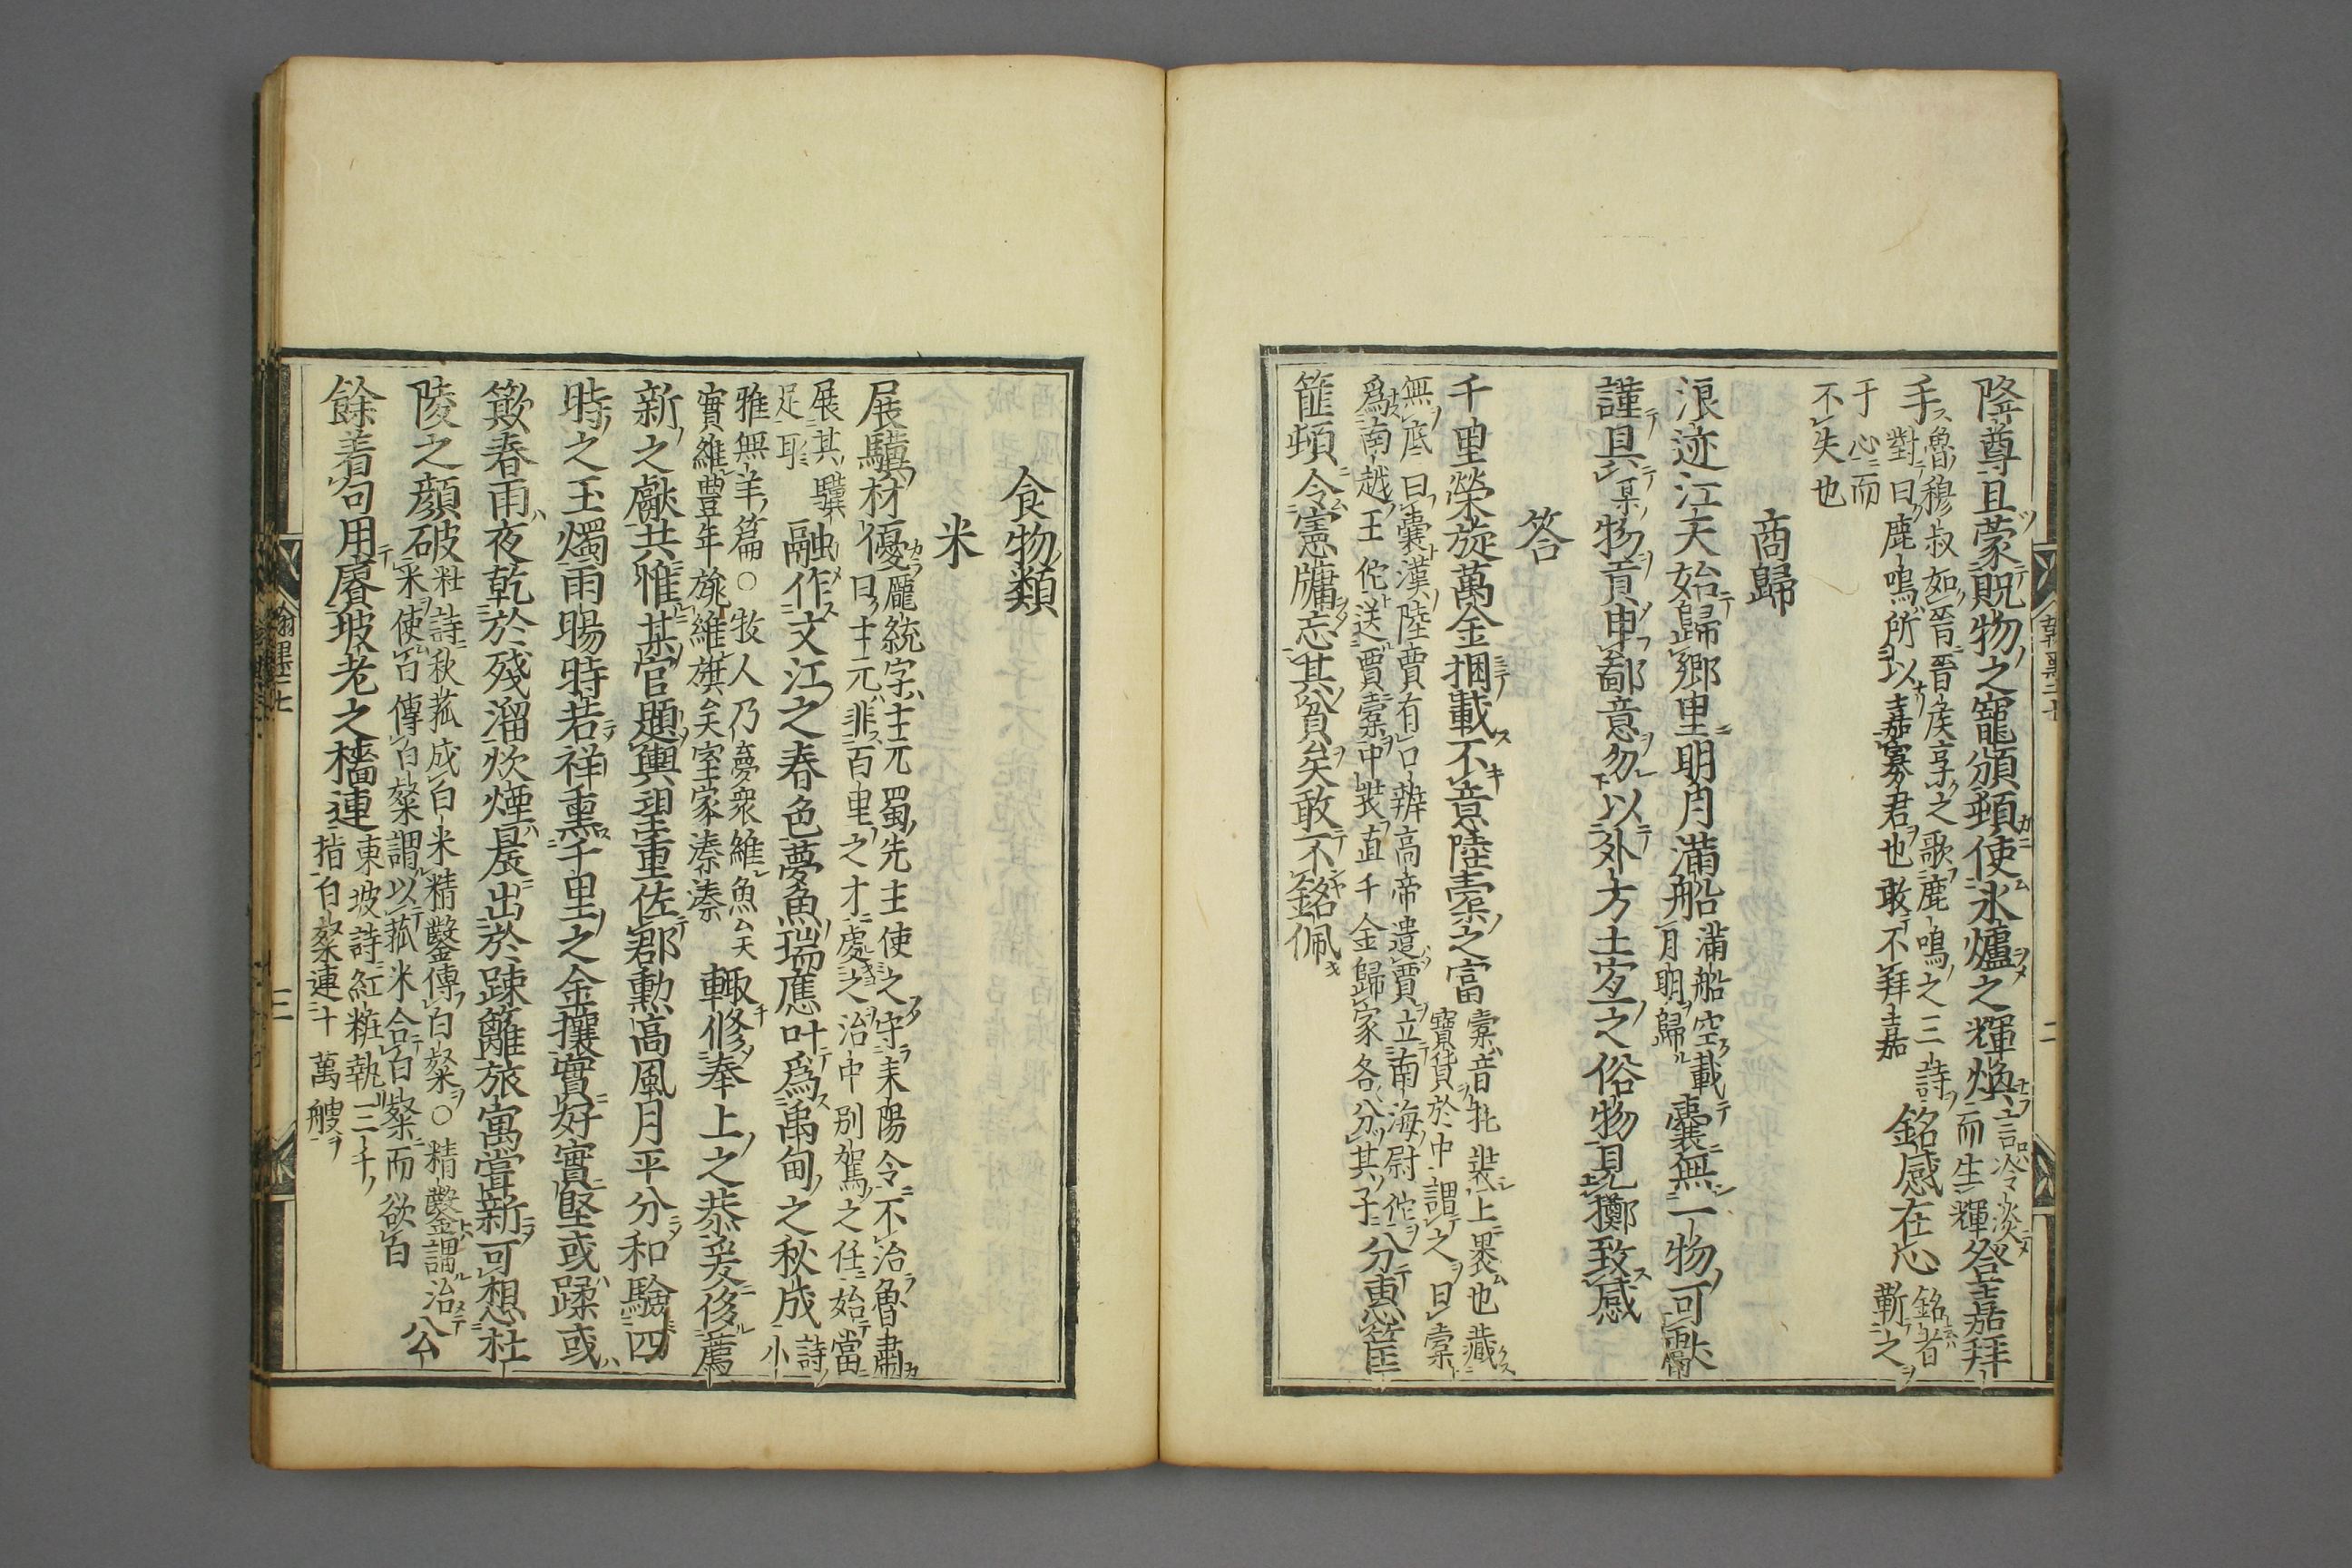 隆尊且蒙貺物之寵頒頚使永爐之輝煥言冷淡而生輝登嘉拜
手魯穆叔如晉晉矦享之歌鹿鳴之三詩對曰鹿鳴所以嘉寡君也敢不拜嘉銘感在心銘者蘄之
于心而不失也
商歸
浪迹江天始歸郷里明月滿船滿船空載月明歸囊無一物可獻
謹具某物貢申鄙意勿以外方土冝之俗物見擲致感
答
千里榮旋萬金捆載不意陸橐之富橐音托裝上裹也藏寶貨於中謂之曰橐
無底曰囊漢陸賈有口辨高帝遣賈立南海尉佗爲南越王佗送賈橐中裝直千金歸家各分其子分惠筐
篚頻令窻牗忘其貧矣敢不銘佩
翰墨二七
二
食物類
米
展驥材優龐統字士元蜀先主使之守耒陽令不治魯肅曰士元非百里之才處之治中别駕之任始當
展其驥足耳融作文江之春色夢魚瑞應叶爲禹甸之秋成詩小
雅無羊篇○牧人乃夢衆維魚厶天實維豐年旐維旟矣室家溱溱輙修奉上之恭爰侈薦
新之獻共惟某官題輿望重佐郡勳高風月平分和驗四
時之玉燭雨暘時若祥熏千里之金穰實好實堅或蹂或
簸春雨夜乾於殘溜炊煙晨出於疎籬旅寓嘗新可想杜
陵之顔破杜詩秋菰成白米精鑿傳白粲○精鑿謂治米使白傳白粲謂以菰米合白粲而欲白公
餘着句用賡坡老之檣連東坡詩紅粧執三千指白粲連檣十萬艘
翰墨二七
三